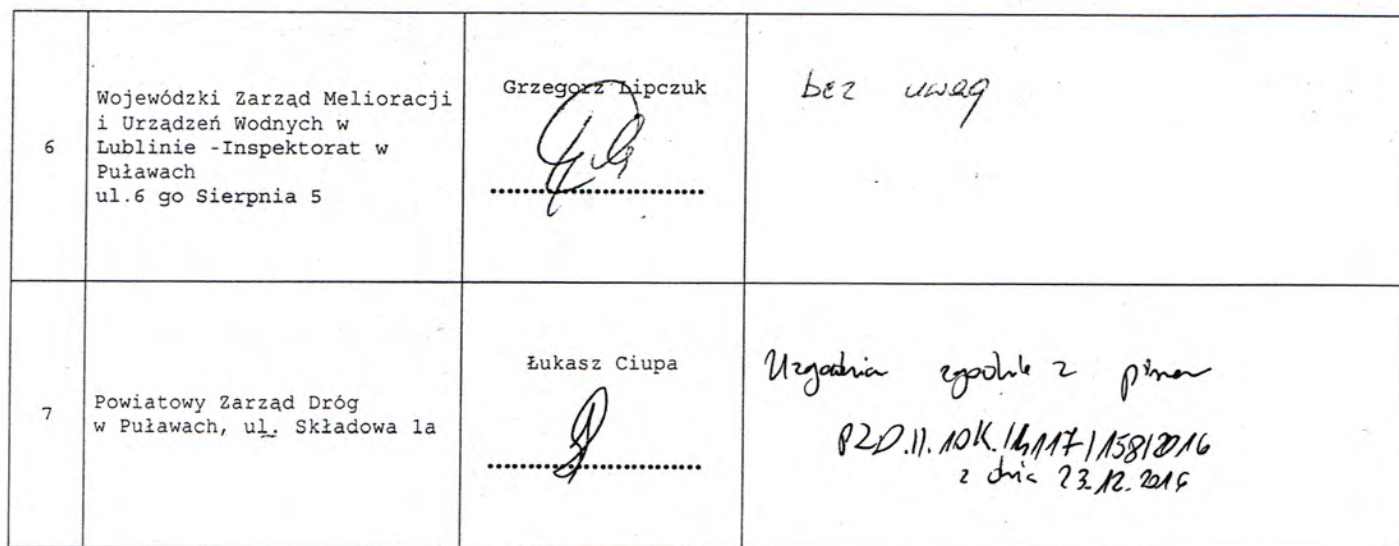 6
Wojewódzki Zarząd Melioracji
i Urządzeń Wodnych w
Lublinie -Inspektorat w
Puławach
ul.6 go Sierpnia 5
Grzegorz Lipczuk
bez uwag
7
Powiatowy Zarząd Dróg
w Puławach, ul. Składowa 1a
Łukasz Ciupa
Uzgadnia zgodnie z pismem
z dnia 23.12.2016